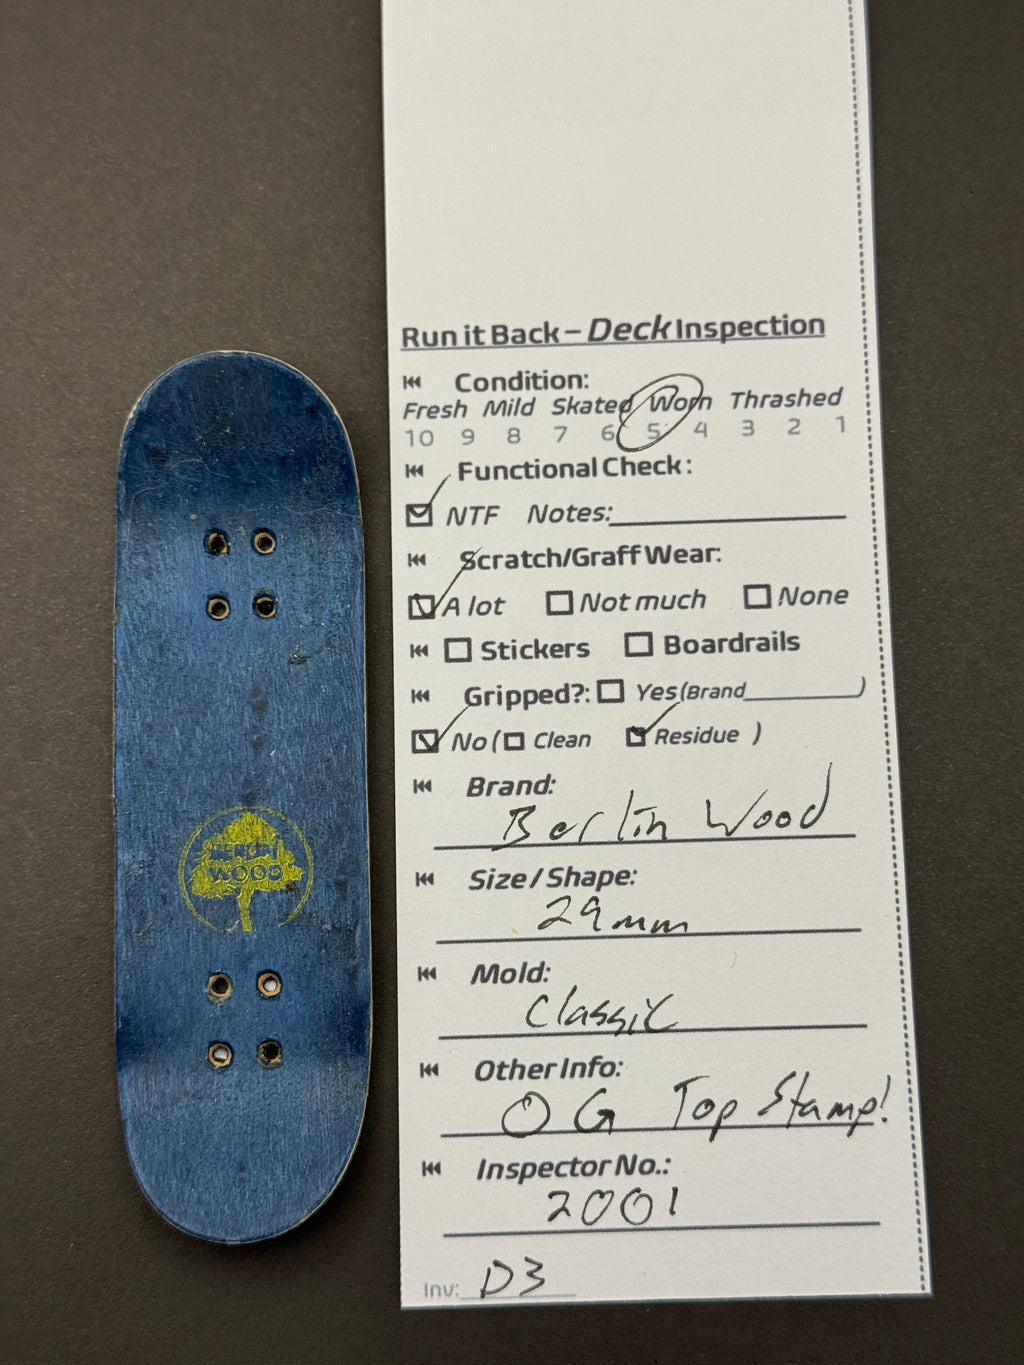 BERLIN
WOOD
Run it Back – Deck Inspection
Condition:
Fresh Mild Skated Worn Thrashed
10 9 8 7 6 5 4 3 2 1
Functional Check:
NTF Notes:
Scratch/Graff Wear:
A lot Not much None
Stickers Boardrails
Gripped?: Yes (Brand )
No ( Clean Residue )
Brand:
Berlin Wood
Size / Shape:
29mm
Mold:
Classic
Other Info:
OG Top Stamp!
Inspector No.:
2001
Inv: D3